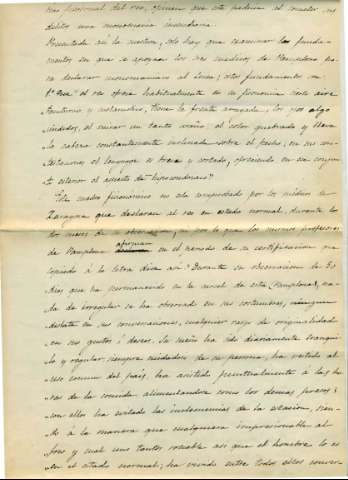 nas fisonomial del reo, opinan que este padecia al cometer su
delito una monomania incendiaria
Presentada así la cuestion, solo hay que examinar los funda-
mentos en que se apoyan los tres medicos de Pamplona pa-
ra declarar monomaniaco al ; estos fundamentos son
1º Que el reo ofrece habitualmente en su fisonomia cierto aire
taciturno y melancolico, tiene la frente arrugada, los ojos algo
hundidos, el mirar un tanto uraño, el color quebrado y lleva
la cabeza constantemente inclinada sobre el pecho, en sus con-
testaciones el lenguage es breve y cortado, ofreciendo en su conjun-
to exterior el aspecto de hipocondriaco"
Este cuadro fisionómico no está comprobado por los médicos de
Zaragoza que declaran al reo en estado normal, durante los
dos meses de su observacion, ni por lo que los mismos profesores
de Pamplona afirman en el periodo de su certificacion que
copiado á la letra dice así: "Durante su observacion de 50
dias que ha permanecido en la carcel de esta (Pamplona), na-
da de irregular se ha observado en sus costumbres, ningun
debate en sus conversaciones, cualquier rasgo de originalidad
en sus gustos ó deseos. Su sueño ha sido diariamente tranqui-
lo y regular siempre cuidadoso de su persona, ha vestido al
uso comun del país, ha asistido puntualmente á las ho-
ras de la comida alimentandose como los demas presos:
con ellos ha evitado las inclemencias de la estacion, sien-
do á la manera que cualquiera impresionable al
frio y cual uno tantos sociable así que el hombre lo es
en el estado normal; ha vivido entre todos ellos conver-